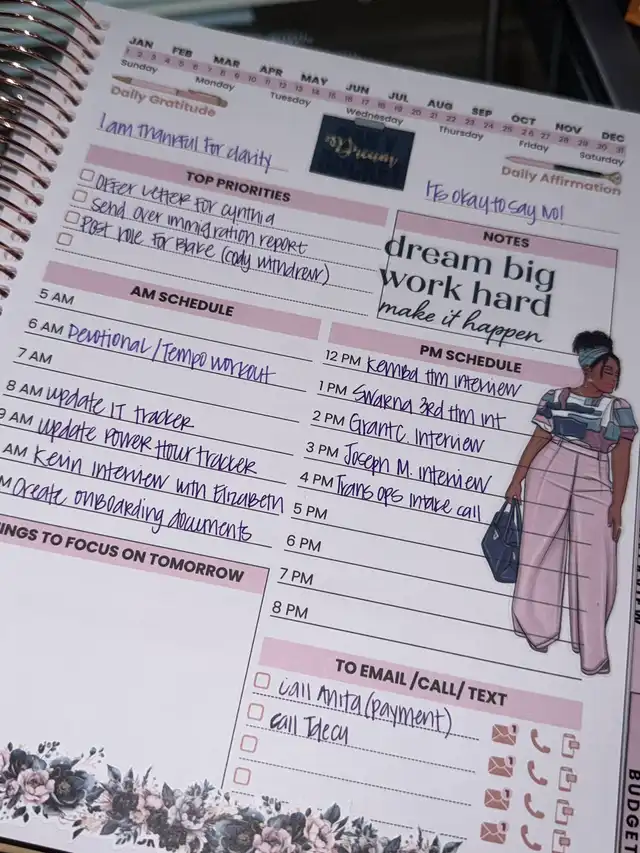 JAN FEB MAR APR MAY JUN JUL AUG SEP OCT NOV DEC
1 2 3 4 5 6 7 8 9 10 11 12 13 14 15 16 17 18 19 20 21 22 23 24 25 26 27 28 29 30 31
Sunday Monday Tuesday Wednesday Thursday Friday Saturday
Daily Gratitude
I am thankful for clarity
Daily Affirmation
It's okay to say NO!
TOP PRIORITIES
Offer letter for Cynthia
Send over immigration report
Post role for Blake (Cody withdrew)
NOTES
dream big
work hard
make it happen
AM SCHEDULE
5 AM
6 AM Devotional / Tempo workout
7 AM
8 AM update IT tracker
9 AM update Power Hour tracker
AM Kevin interview with Elizabeth
M Create onboarding documents
PM SCHEDULE
12 PM Kemba tm interview
1 PM Swarna 3rd tm int
2 PM Grant C. Interview
3 PM Joseph M. interview
4 PM Trans ops intake call
5 PM
6 PM
7 PM
8 PM
INGS TO FOCUS ON TOMORROW
TO EMAIL /CALL/ TEXT
Call Anita (payment)
Call
BUDGET